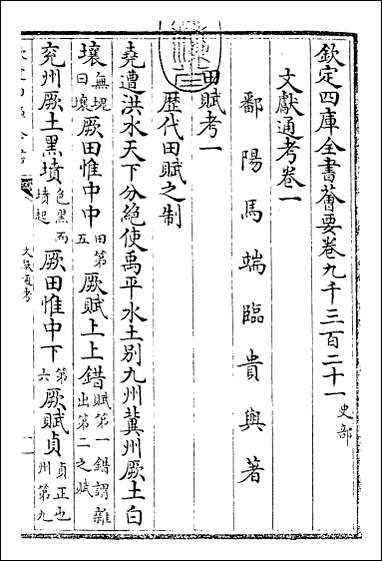 欽定四庫全書薈要卷九千三百二十一 史部
文獻通考卷一
鄱陽馬端臨貴與著
田賦考一
歷代田賦之制
堯遭洪水天下分絶使禹平水土别九州冀州厥土白
壤無塊曰壤厥田惟中中田第五厥賦上上錯賦第一錯謂雜出第二之賦
兖州厥土黒墳色黒而墳起厥田惟中下第六厥賦貞貞正也州第九
文獻通考